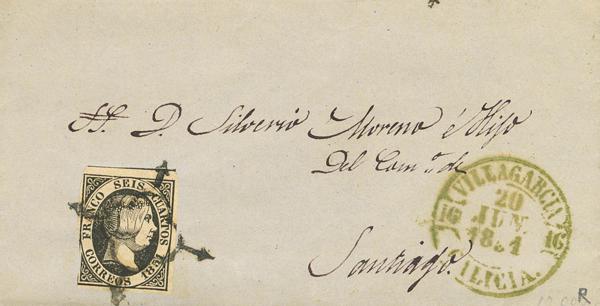 SS. D. Silverio Moreno é Hijo
Del Com.º de
Santiago.
FRANCO SEIS CUARTOS
CORREOS 1851
VILLAGARCIA
20
16 JUN. 16
1851
ILICIA.
R